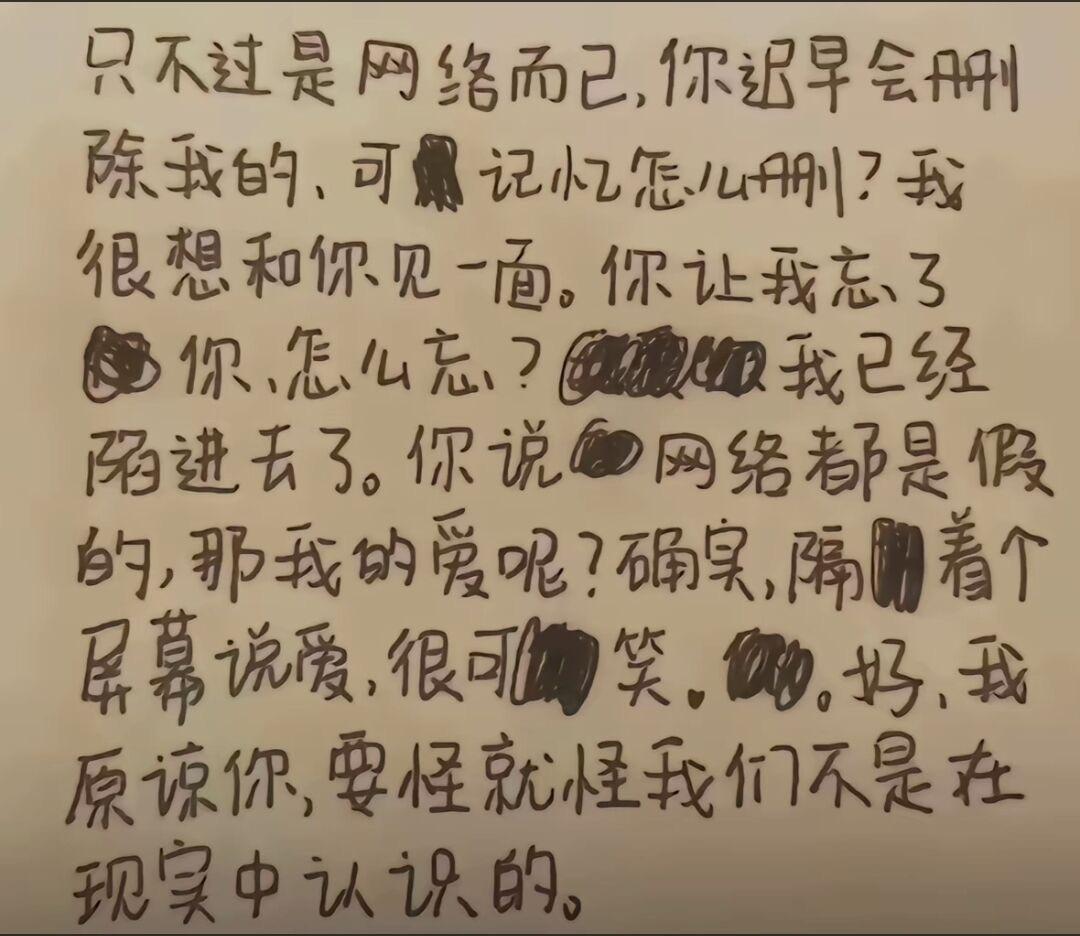 只不过是网络而已,你迟早会删
除我的、可 记忆怎么删?我
很想和你见一面。你让我忘了
你、怎么忘?我已经
陷进去了。你说 网络都是假
的,那我的爱呢?确实,隔 着个
屏幕说爱,很可 笑. 。好、我
原谅你,要怪就怪我们不是在
现实中认识的。